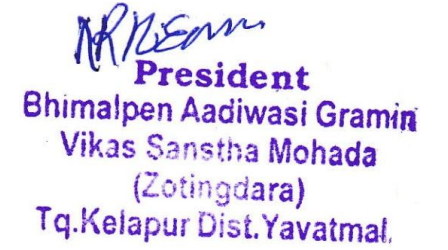 President
Bhimalpen Aadiwasi Gramin
Vikas Sanstha Mohada
(Zotingdara)
Tq.Kelapur Dist.Yavatmal.